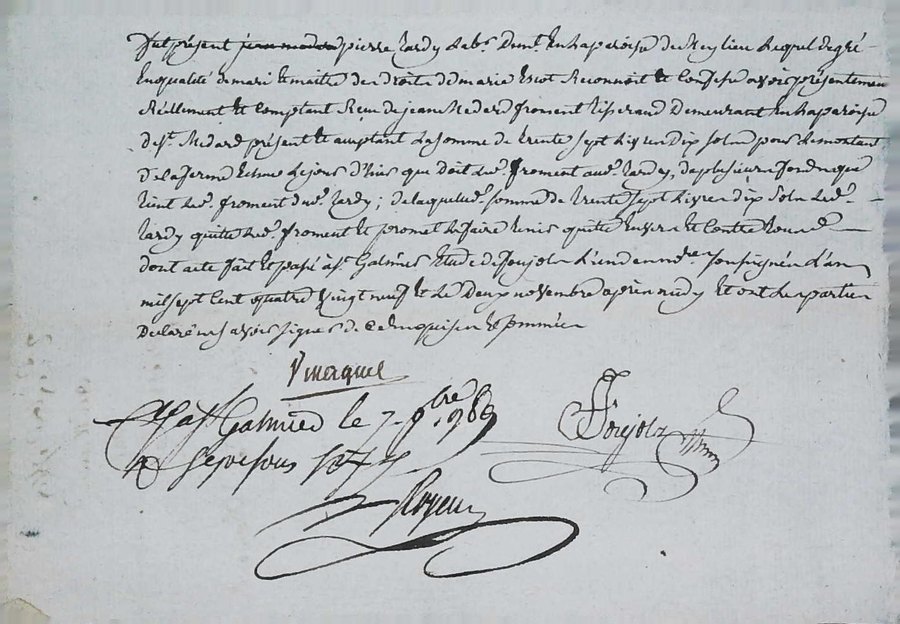 fut présent pierre tardy lab.r dem.t en la paroisse de lequel de gré
en qualité de mari et maitre des droits de marie escot Reconnoit et confesse avoir présentemen
Réellement et comptant Reçu de jean Medard froment tisserand demeurant en la paroisse
de s.t Medard présent et acceptant la somme de trente sept livres dix sols pour le montant
de la ferme echue le jour d'hier que doit led. froment aud. tardy, de plusieurs fonds que
tient led. froment dud. tardy; de laquelle somme de trente sept livres dix sols led.
tardy quitte led. froment et promet le faire tenir quitte envers et contre tous
dont acte fait et passé a s.t Galmier etude de foujols l'un des no.res soussignés l'an
mil sept cent quatre vingt neuf et le deux novembre apres midy et ont les parties
declaré ne savoir signer de ce enquises et sommées
a s.t Galmier le 7. 9bre. 1789
R sept sous
foujols
Royer